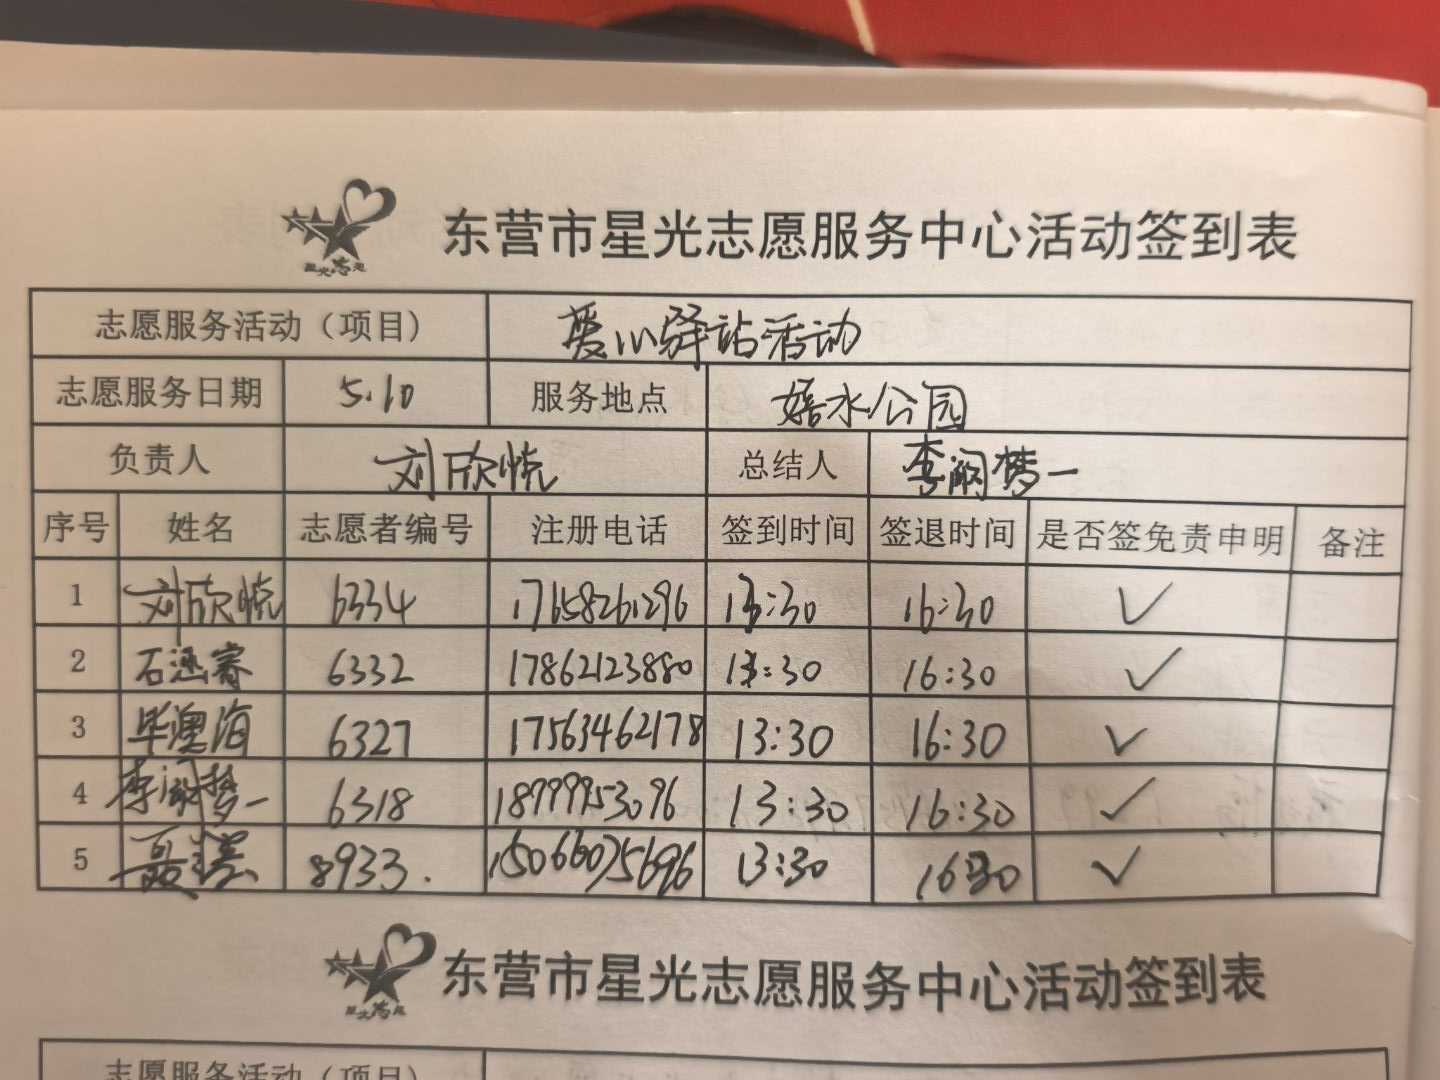 东营市星光志愿服务中心活动签到表
志愿服务活动（项目） 爱心驿站活动
志愿服务日期 5.10 服务地点 嬉水公园
负责人 刘欣悦 总结人 李润梦一
序号 姓名 志愿者编号 注册电话 签到时间 签退时间 是否签免责申明 备注
1 刘欣悦 6334 17658261296 13:30 16:30 ✓
2 石涵睿 6332 17862123880 13:30 16:30 ✓
3 毕澳海 6327 17563462178 13:30 16:30 ✓
4 李润梦一 6318 18999953096 13:30 16:30 ✓
5 8933. 15066075696 13:30 16:30 ✓
东营市星光志愿服务中心活动签到表
志愿服务活动（项目）